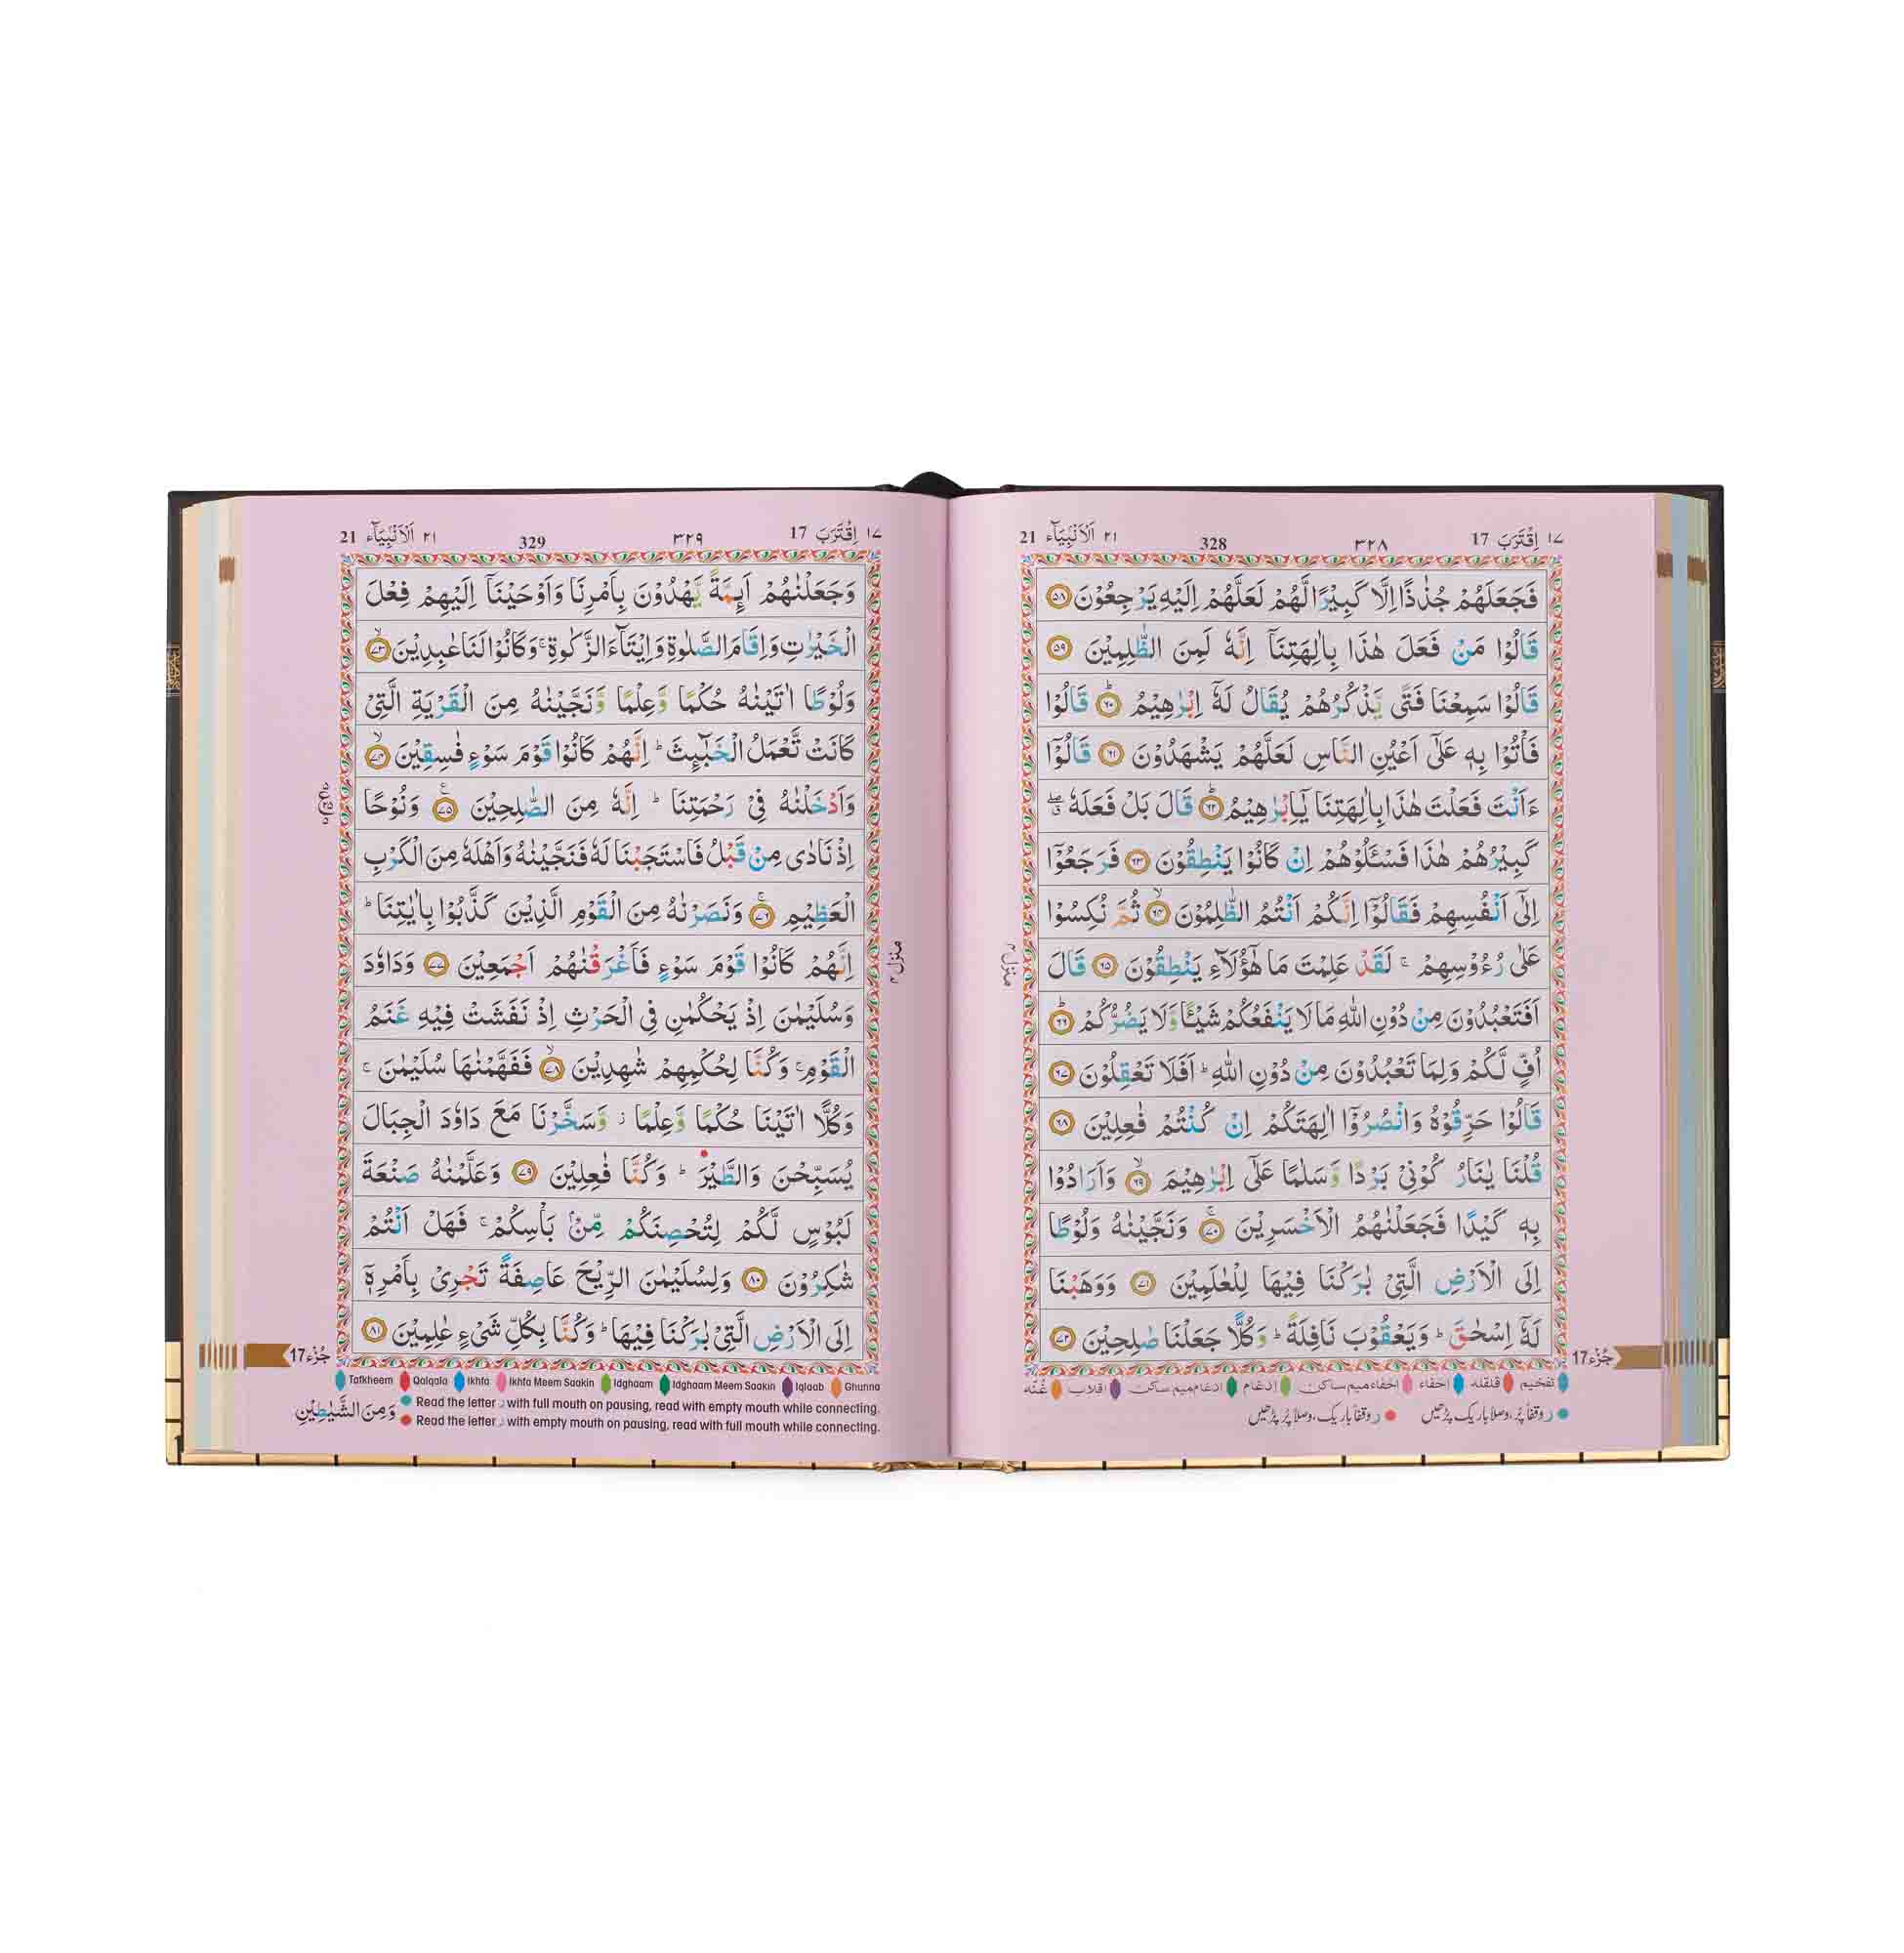 ١٧ اِقْتَرَبَ 17
٣٢٨
328
٢١ اَلْاَنْبِيَآء 21
فَجَعَلَهُمْ جُذٰذًا اِلَّا كَبِيْرًا لَّهُمْ لَعَلَّهُمْ اِلَيْهِ يَرْجِعُوْنَ ۝٥٨
قَالُوْا مَنْ فَعَلَ هٰذَا بِاٰلِهَتِنَاۤ اِنَّهٗ لَمِنَ الظّٰلِمِيْنَ ۝٥٩
قَالُوْا سَمِعْنَا فَتًى يَّذْكُرُهُمْ يُقَالُ لَهٗۤ اِبْرٰهِيْمُ ؕ۝٦٠ قَالُوْا
فَاْتُوْا بِهٖ عَلٰۤى اَعْيُنِ النَّاسِ لَعَلَّهُمْ يَشْهَدُوْنَ ۝٦١ قَالُوْۤا
ءَاَنْتَ فَعَلْتَ هٰذَا بِاٰلِهَتِنَا يٰۤاِبْرٰهِيْمُ ؕ۝٦٢ قَالَ بَلْ فَعَلَهٗ ۖ ق
كَبِيْرُهُمْ هٰذَا فَسْـَٔلُوْهُمْ اِنْ كَانُوْا يَنْطِقُوْنَ ۝٦٣ فَرَجَعُوْۤا
اِلٰۤى اَنْفُسِهِمْ فَقَالُوْۤا اِنَّكُمْ اَنْتُمُ الظّٰلِمُوْنَ ۙ۝٦٤ ثُمَّ نُكِسُوْا
عَلٰى رُءُوْسِهِمْ ۚ لَقَدْ عَلِمْتَ مَا هٰۤؤُلَآءِ يَنْطِقُوْنَ ۝٦٥ قَالَ
اَفَتَعْبُدُوْنَ مِنْ دُوْنِ اللّٰهِ مَا لَا يَنْفَعُكُمْ شَيْـًٔا وَّلَا يَضُرُّكُمْ ؕ۝٦٦
اُفٍّ لَّكُمْ وَلِمَا تَعْبُدُوْنَ مِنْ دُوْنِ اللّٰهِ ؕ اَفَلَا تَعْقِلُوْنَ ۝٦٧
قَالُوْا حَرِّقُوْهُ وَانْصُرُوْۤا اٰلِهَتَكُمْ اِنْ كُنْتُمْ فٰعِلِيْنَ ۝٦٨
قُلْنَا يٰنَارُ كُوْنِيْ بَرْدًا وَّسَلٰمًا عَلٰۤى اِبْرٰهِيْمَ ۙ۝٦٩ وَاَرَادُوْا
بِهٖ كَيْدًا فَجَعَلْنٰهُمُ الْاَخْسَرِيْنَ ۚ۝٧٠ وَنَجَّيْنٰهُ وَلُوْطًا
اِلَى الْاَرْضِ الَّتِيْ بٰرَكْنَا فِيْهَا لِلْعٰلَمِيْنَ ۝٧١ وَوَهَبْنَا
لَهٗۤ اِسْحٰقَ ؕ وَيَعْقُوْبَ نَافِلَةً ؕ وَكُلًّا جَعَلْنَا صٰلِحِيْنَ ۝٧٢
منزل ٤
جُزْء 17
تفخیم قلقله اخفاء اخفاء میم ساکن إدغام ادغام میم ساکن اقلاب غُنّه
ر وقفاً پُر، وصلاً باریک پڑھیں ر وقفاً باریک، وصلاً پُر پڑھیں
١٧ اِقْتَرَبَ 17
٣٢٩
329
٢١ اَلْاَنْبِيَآء 21
وَجَعَلْنٰهُمْ اَئِمَّةً يَّهْدُوْنَ بِاَمْرِنَا وَاَوْحَيْنَاۤ اِلَيْهِمْ فِعْلَ
الْخَيْرٰتِ وَاِقَامَ الصَّلٰوةِ وَاِيْتَآءَ الزَّكٰوةِ ۚ وَكَانُوْا لَنَا عٰبِدِيْنَ ۙ۝٧٣
وَلُوْطًا اٰتَيْنٰهُ حُكْمًا وَّعِلْمًا وَّنَجَّيْنٰهُ مِنَ الْقَرْيَةِ الَّتِيْ
كَانَتْ تَّعْمَلُ الْخَبٰٓئِثَ ؕ اِنَّهُمْ كَانُوْا قَوْمَ سَوْءٍ فٰسِقِيْنَ ۙ۝٧٤
وَاَدْخَلْنٰهُ فِيْ رَحْمَتِنَا ؕ اِنَّهٗ مِنَ الصّٰلِحِيْنَ ۝٧٥ وَنُوْحًا
اِذْ نَادٰى مِنْ قَبْلُ فَاسْتَجَبْنَا لَهٗ فَنَجَّيْنٰهُ وَاَهْلَهٗ مِنَ الْكَرْبِ
الْعَظِيْمِ ۚ۝٧٦ وَنَصَرْنٰهُ مِنَ الْقَوْمِ الَّذِيْنَ كَذَّبُوْا بِاٰيٰتِنَا ؕ
اِنَّهُمْ كَانُوْا قَوْمَ سَوْءٍ فَاَغْرَقْنٰهُمْ اَجْمَعِيْنَ ۝٧٧ وَدَاوٗدَ
وَسُلَيْمٰنَ اِذْ يَحْكُمٰنِ فِي الْحَرْثِ اِذْ نَفَشَتْ فِيْهِ غَنَمُ
الْقَوْمِ ۚ وَكُنَّا لِحُكْمِهِمْ شٰهِدِيْنَ ۙ۝٧٨ فَفَهَّمْنٰهَا سُلَيْمٰنَ ۚ
وَكُلًّا اٰتَيْنَا حُكْمًا وَّعِلْمًا ز وَّسَخَّرْنَا مَعَ دَاوٗدَ الْجِبَالَ
يُسَبِّحْنَ وَالطَّيْرَ ؕ وَكُنَّا فٰعِلِيْنَ ۝٧٩ وَعَلَّمْنٰهُ صَنْعَةَ
لَبُوْسٍ لَّكُمْ لِتُحْصِنَكُمْ مِّنْۢ بَاْسِكُمْ ۚ فَهَلْ اَنْتُمْ
شٰكِرُوْنَ ۝٨٠ وَلِسُلَيْمٰنَ الرِّيْحَ عَاصِفَةً تَجْرِيْ بِاَمْرِهٖۤ
اِلَى الْاَرْضِ الَّتِيْ بٰرَكْنَا فِيْهَا ؕ وَكُنَّا بِكُلِّ شَيْءٍ عٰلِمِيْنَ ۝٨١
منزل ٤
جُزْء 17
Tafkheem Qalqala Ikhfa Ikhfa Meem Saakin Idghaam Idghaam Meem Saakin Iqlaab Ghunna
Read the letter ر with full mouth on pausing, read with empty mouth while connecting.
Read the letter ر with empty mouth on pausing, read with full mouth while connecting.
وَمِنَ الشَّيٰطِيْنِ